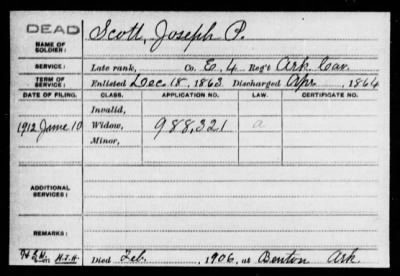 DEAD
NAME OF SOLDIER: Scott, Joseph P.
SERVICE: Late rank, Co. E, 4 Reg't Ark. Cav.
TERM OF SERVICE: Enlisted Dec. 18, 1863 Discharged Apr. , 1864
DATE OF FILING. CLASS. APPLICATION NO. LAW. CERTIFICATE NO.
Invalid,
1912 June 10 Widow, 988,321 a
Minor,
ADDITIONAL SERVICES:
REMARKS:
Died Feb. , 1906, at Benton Ark